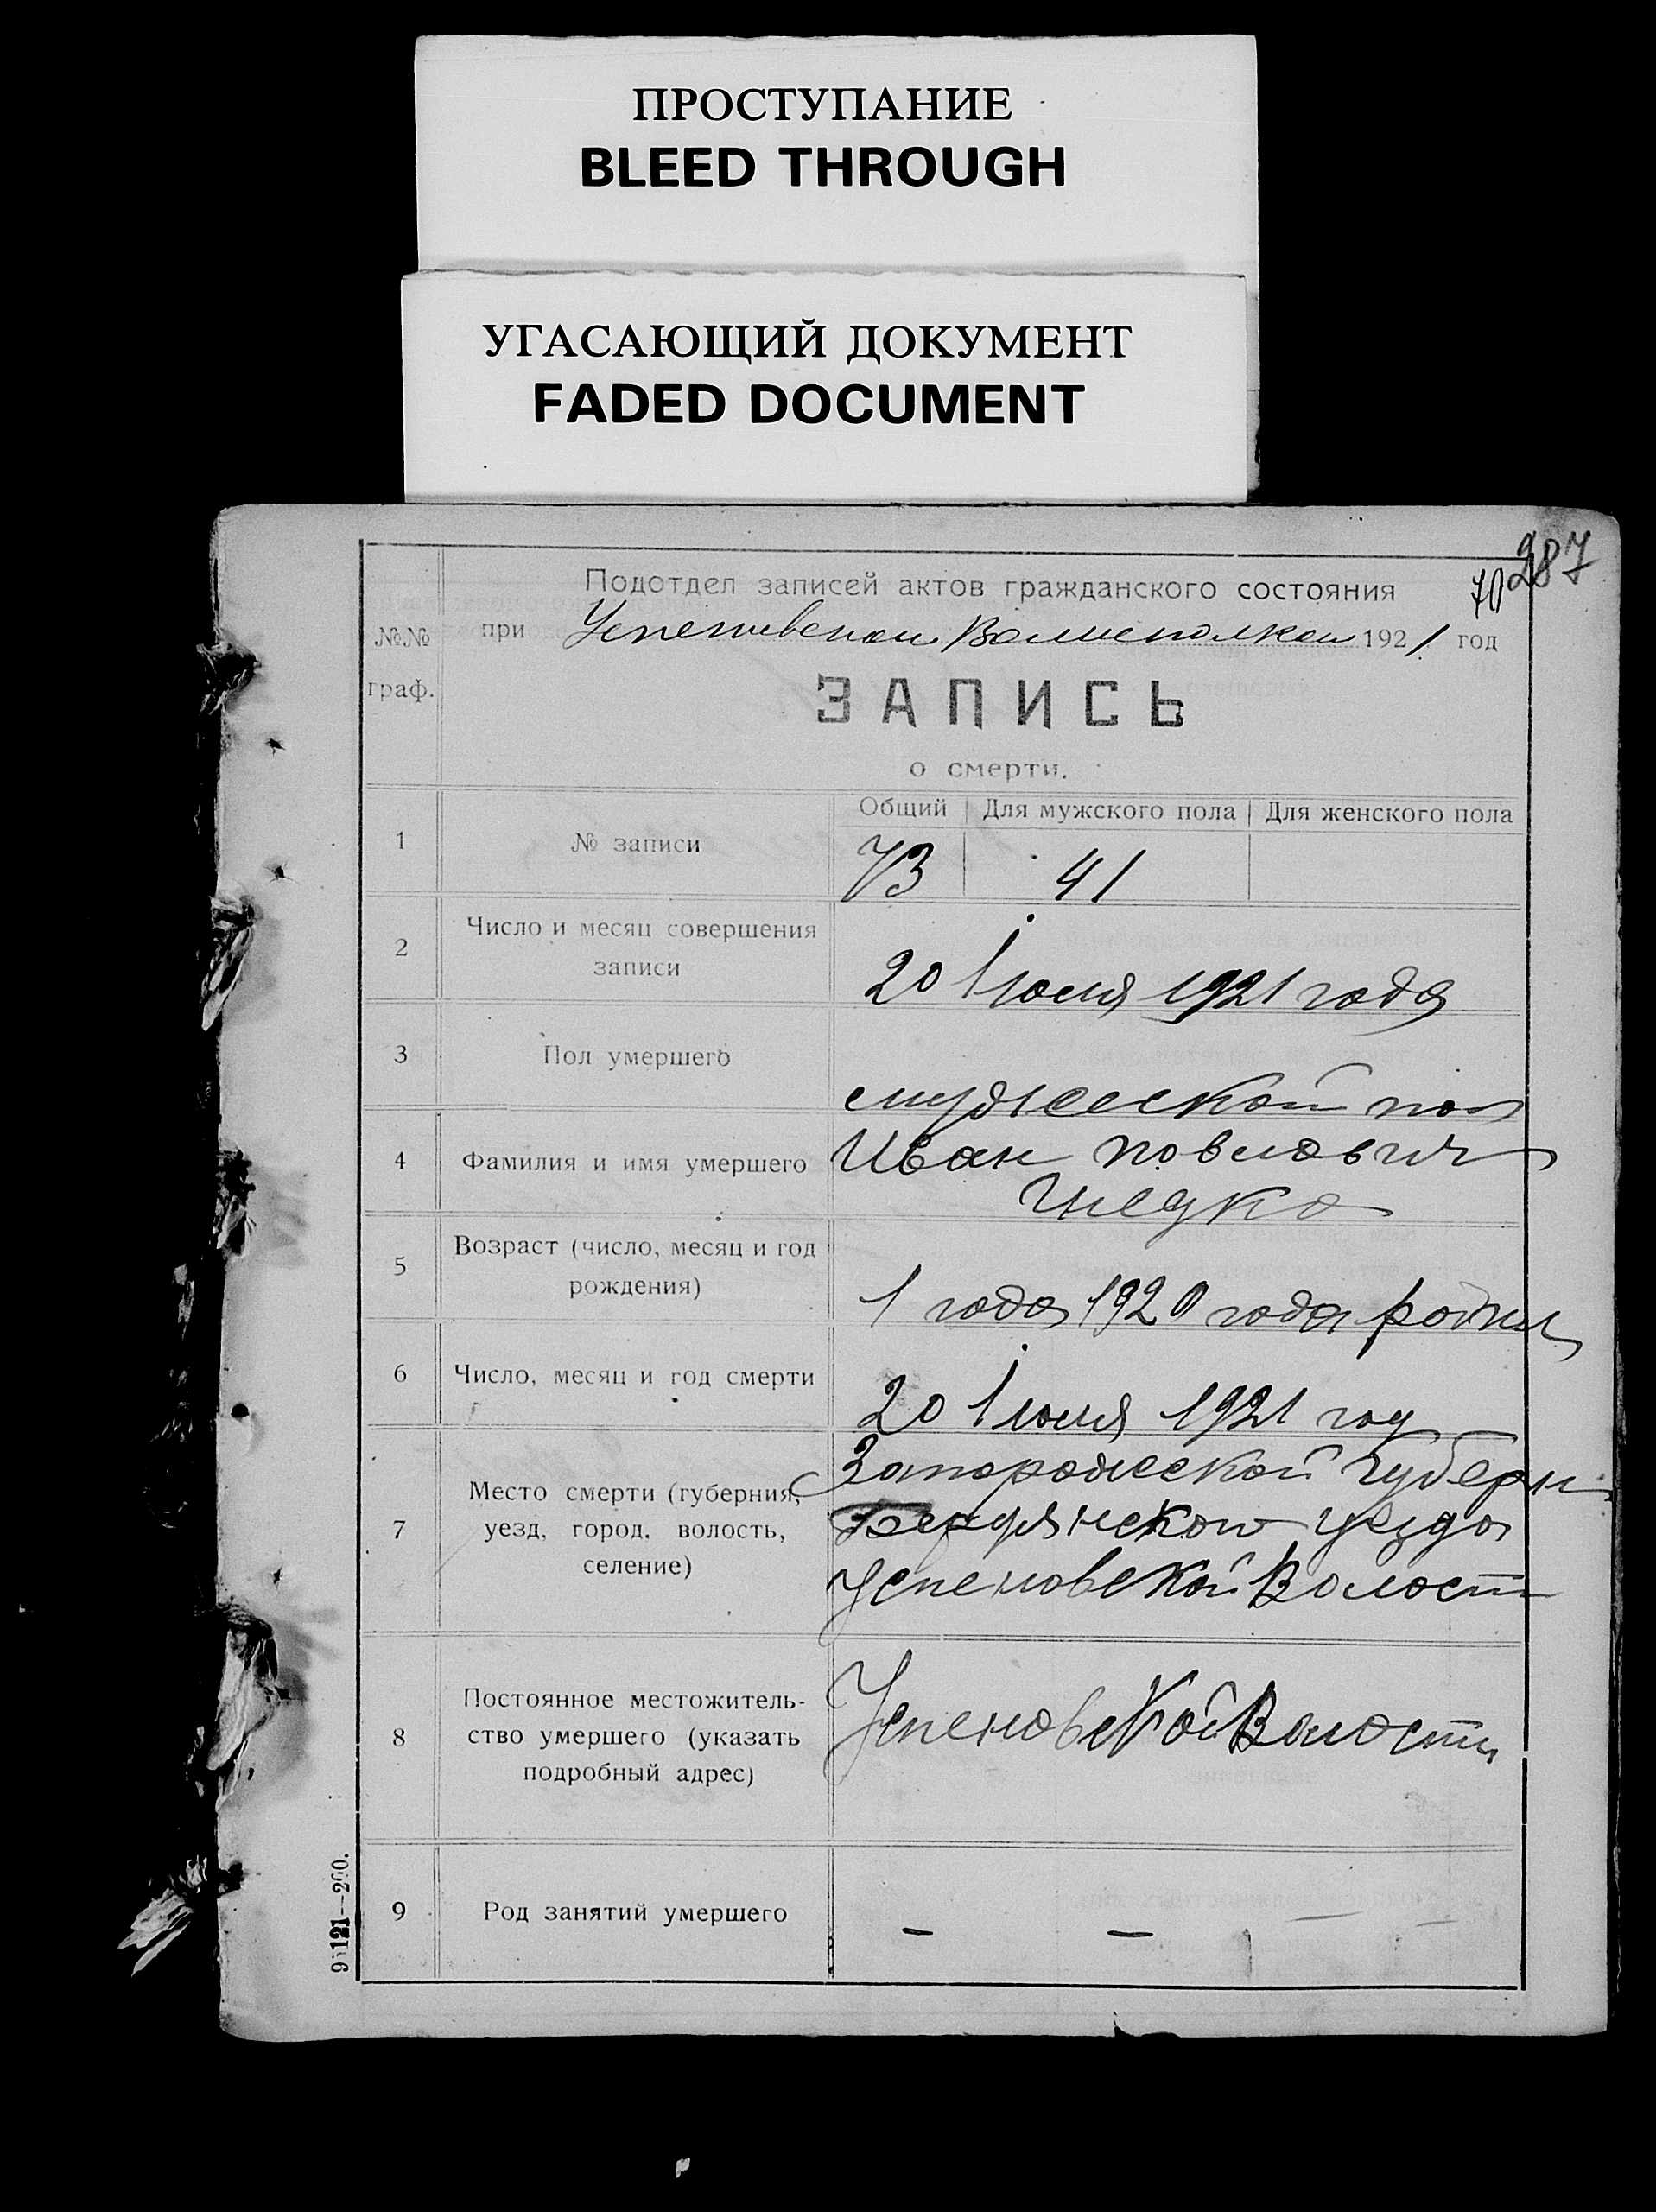 ПРОСТУПАНИЕ
BLEED THROUGH
УГАСАЮЩИЙ ДОКУМЕНТ
FADED DOCUMENT
287
70
Подотдел записей актов гражданского состояния
№№ граф.
при Успеновском Волисполком 1921 год
ЗАПИСЬ
о смерти.
Общий Для мужского пола Для женского пола
1 № записи 73 41
2 Число и месяц совершения
записи
20 Июля 1921 года
3 Пол умершего
мужеской пол
4 Фамилия и имя умершего Иван Повлович
5 Возраст (число, месяц и год
рождения)
1 года 1920 года
6 Число, месяц и год смерти
20 Июля 1921 год
Запорожской Губерн
7 Место смерти (губерния,
уезд, город, волость,
селение)
Бердянского уезда
Успеновской Волости
8 Постоянное местожитель-
ство умершего (указать
подробный адрес)
Успеновской Волости
9 Род занятий умершего — —